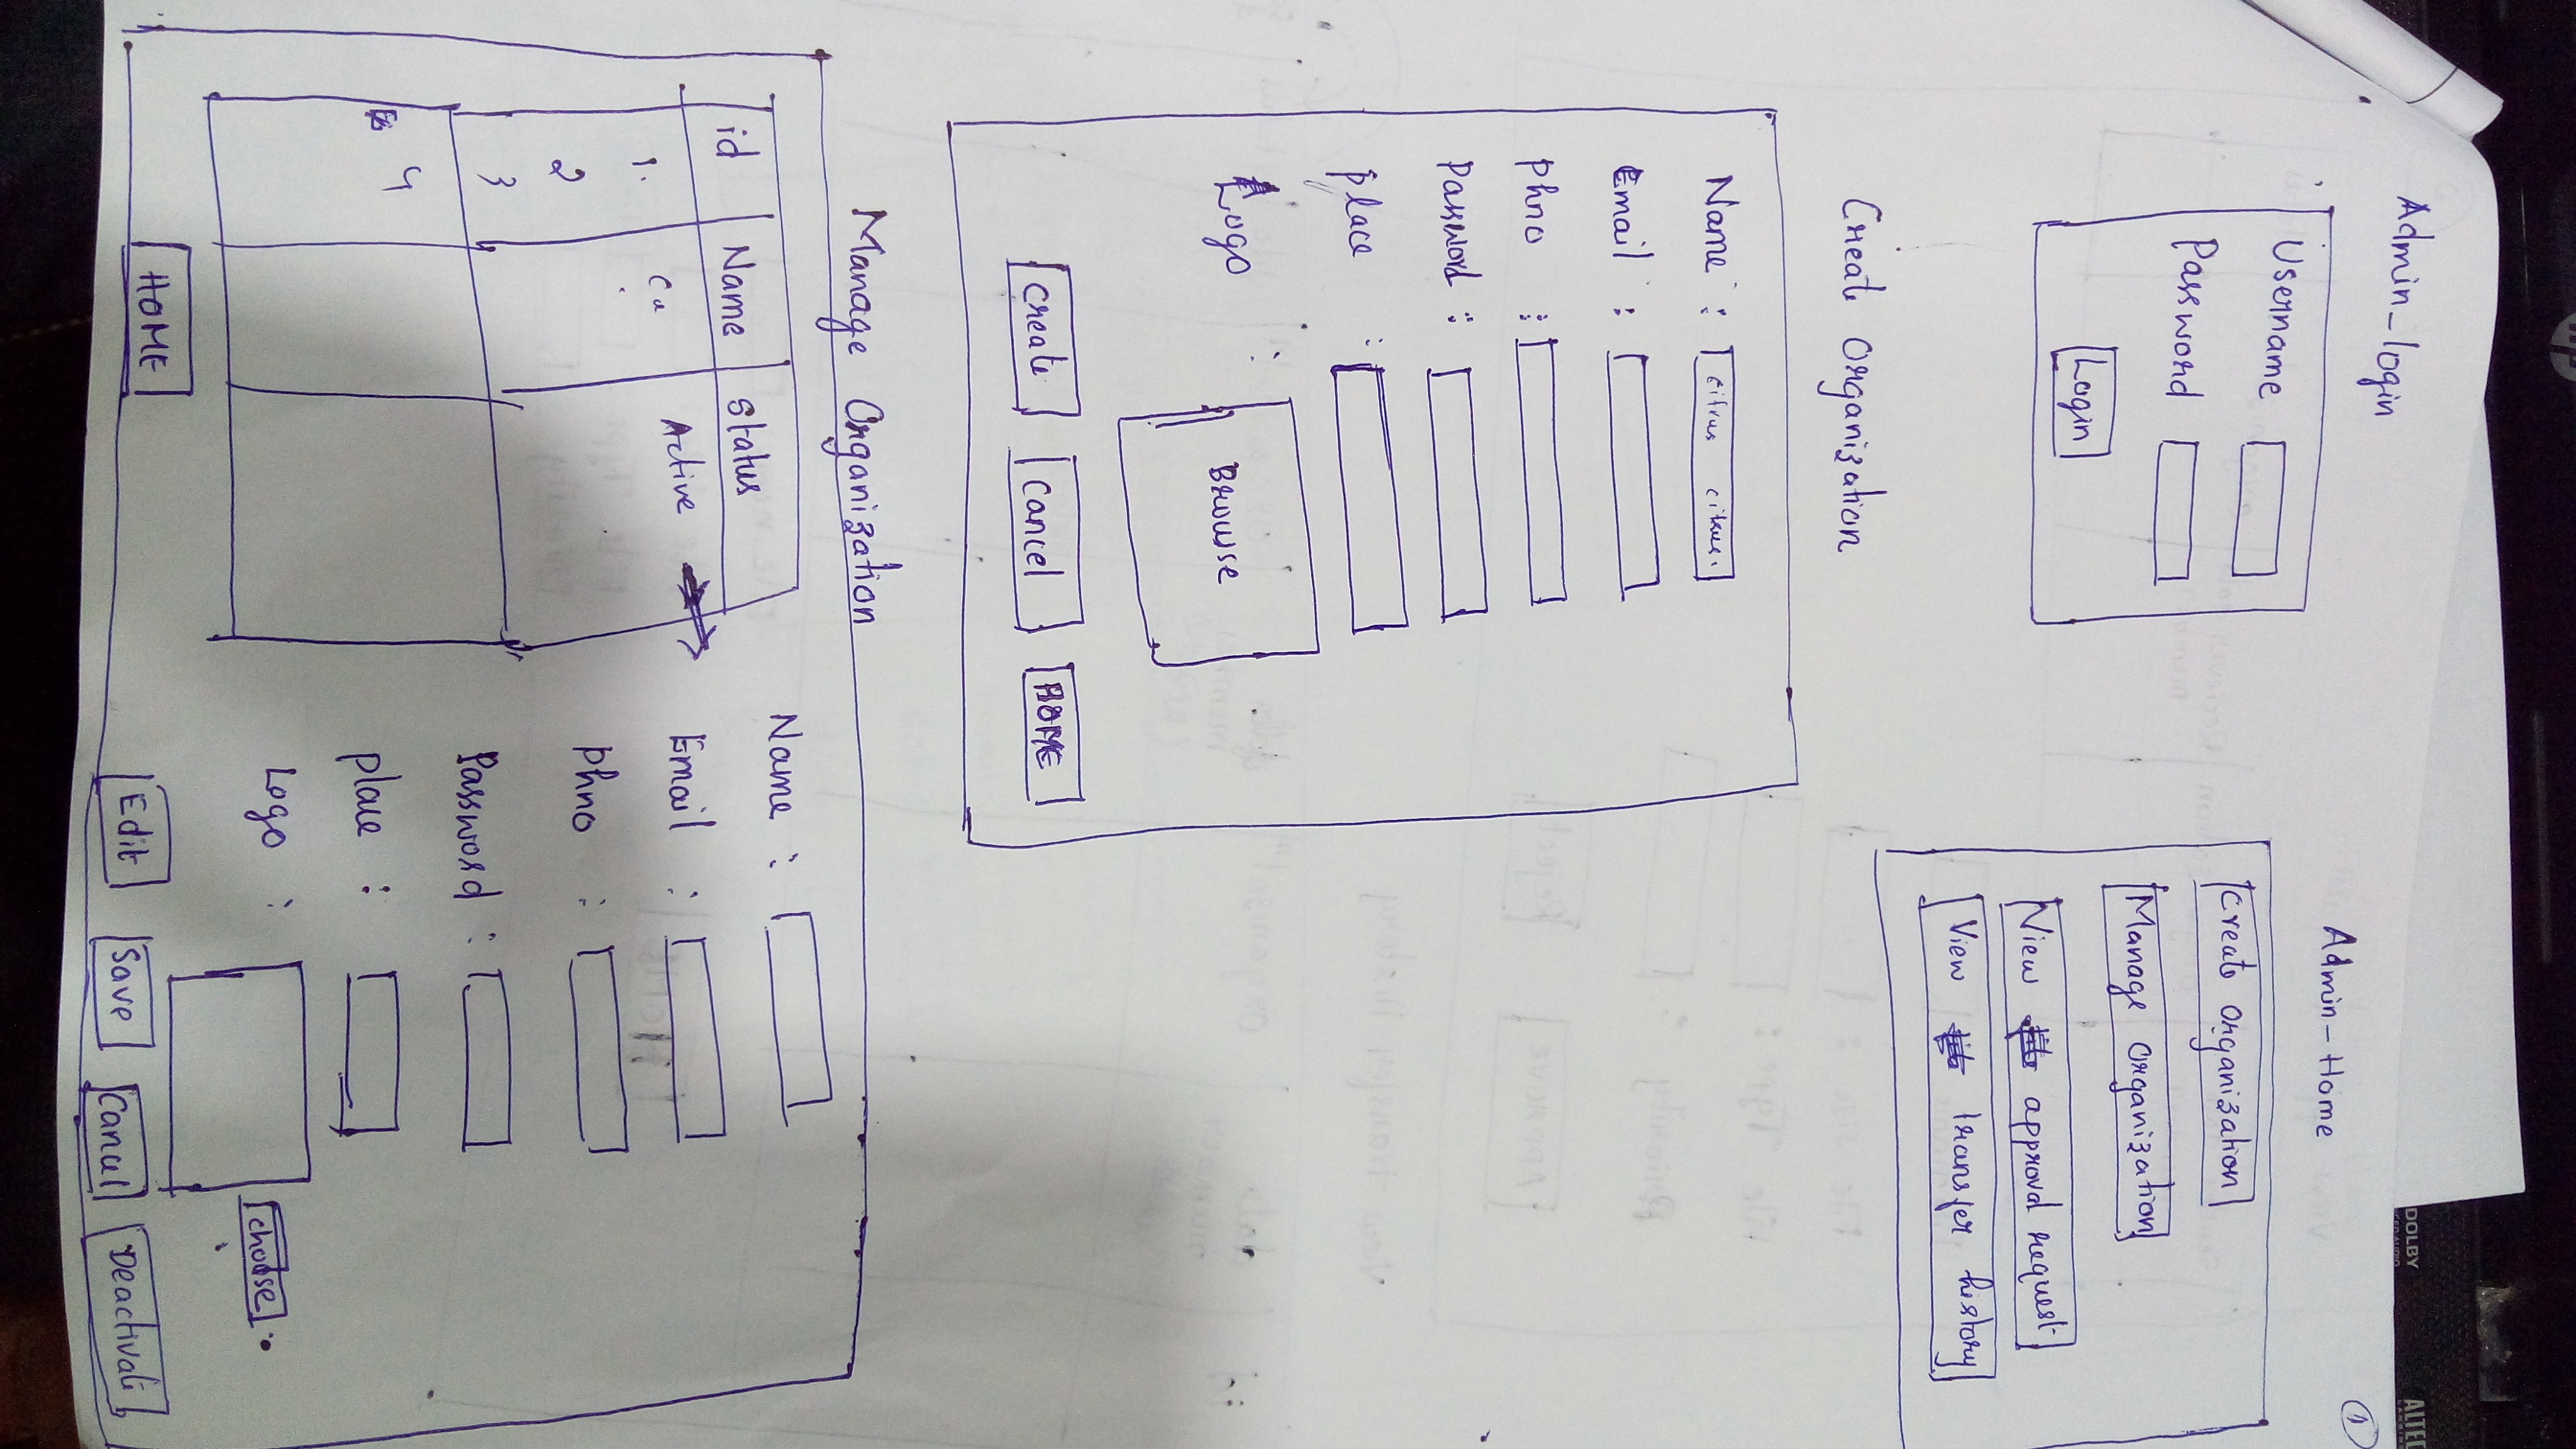 Admin-login
Username
Password
Login
Admin-Home
1
Create Organization
Manage Organization
View approval request
View transfer history
Create Organization
Name : citrus
Email :
phno :
Password :
place :
Logo : Browse
Create Cancel HOME
Manage Organization
id Name Status
1. Ca Active
2
3
4
HOME
Name :
Email :
phno :
Password :
place :
Logo :
choose
Edit Save Cancel Deactivate
DOLBY